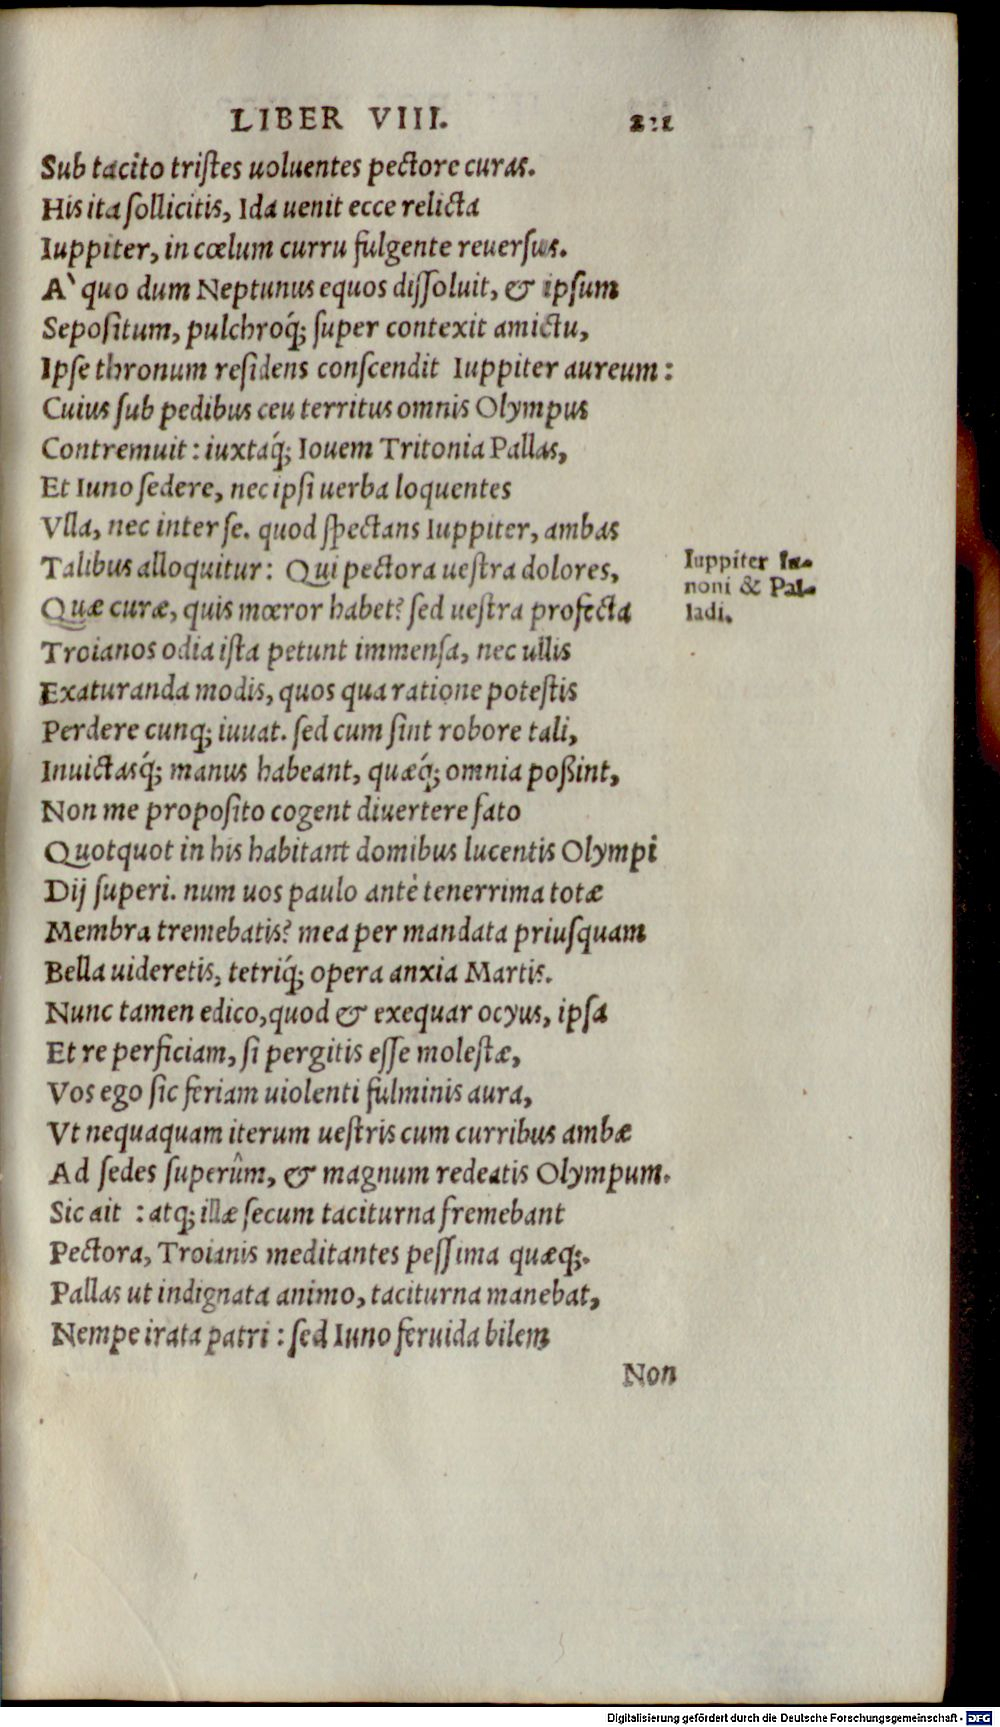 LIBER VIII.
Sub tacito tristes uoluentes pectore curas.
His ita sollicitis, Ida uenit ecce relicta
Iuppiter, in cœlum curru fulgente reuersus.
A` quo dum Neptunus equos dissoluit, & ipsum
Sepositum, pulchroq́; super contexit amictu,
Ipse thronum residens conscendit Iuppiter aureum:
Cuius sub pedibus ceu territus omnis Olympus
Contremuit: iuxtaq́; Iouem Tritonia Pallas,
Et Iuno sedere, nec ipsi uerba loquentes
Vlla, nec inter se. quod spectans Iuppiter, ambas
Talibus alloquitur: Qui pectora uestra dolores,
Iuppiter Iu-
noni & Pal-
ladi.
Quæ curæ, quis mœror habet? sed uestra profecta
Troianos odia ista petunt immensa, nec ullis
Exaturanda modis, quos qua ratione potestis
Perdere cunq; iuuat. sed cum sint robore tali,
Inuictasq́; manus habeant, quæq́; omnia poßint,
Non me proposito cogent diuertere fato
Quotquot in his habitant domibus lucentis Olympi
Dij superi. num uos paulo antè tenerrima totæ
Membra tremebatis? mea per mandata priusquam
Bella uideretis, tetriq́; opera anxia Martis.
Nunc tamen edico, quod & exequar ocyus, ipsa
Et re perficiam, si pergitis esse molestæ,
Vos ego sic feriam uiolenti fulminis aura,
Vt nequaquam iterum uestris cum curribus ambæ
Ad sedes superûm, & magnum redeatis Olympum.
Sic ait : atq; illæ secum taciturna fremebant
Pectora, Troianis meditantes pessima quæq;.
Pallas ut indignata animo, taciturna manebat,
Nempe irata patri : sed Iuno feruida bilem
Non
Digitalisierung gefördert durch die Deutsche Forschungsgemeinschaft - DFG